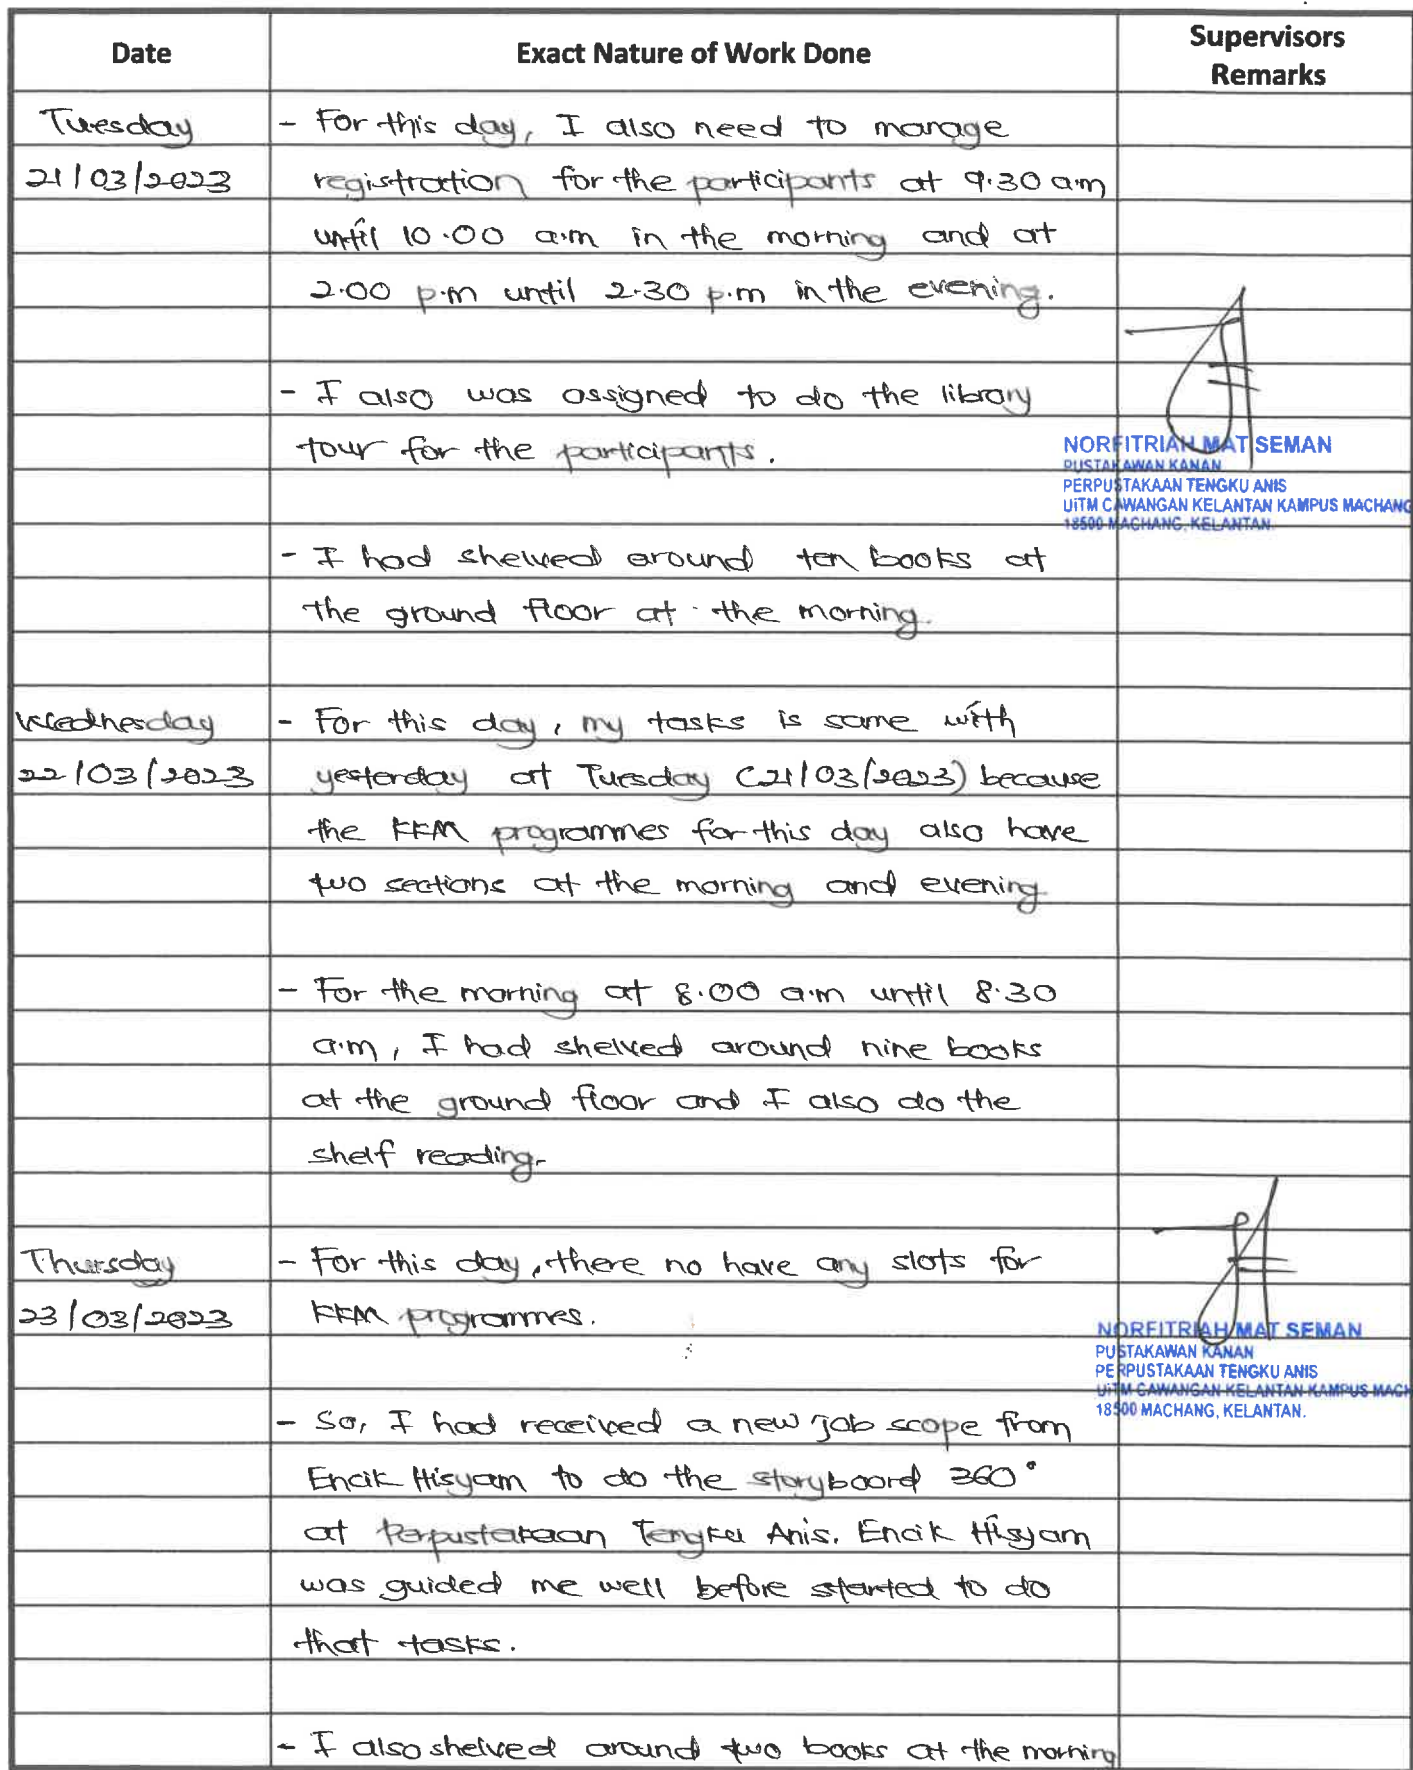 Date Exact Nature of Work Done Supervisors Remarks
Tuesday - For this day, I also need to manage
21/03/2023 registration for the participants at 9.30 a.m
until 10.00 a.m in the morning and at
2.00 p.m until 2.30 p.m in the evening.
- I also was assigned to do the library
tour for the participants.
NORFITRIAH MAT SEMAN
PUSTAKAWAN KANAN
PERPUSTAKAAN TENGKU ANIS
UiTM CAWANGAN KELANTAN KAMPUS MACHANG
18500 MACHANG, KELANTAN.
- I had shelved around ten books at
the ground floor at the morning.
Wednesday - For this day, my tasks is same with
22/03/2023 yesterday at Tuesday (21/03/2023) because
the KKM programmes for this day also have
two sections at the morning and evening
- For the morning at 8.00 a.m until 8.30
a.m, I had shelved around nine books
at the ground floor and I also do the
shelf reading.
Thursday - For this day, there no have any slots for
23/03/2023 KKM programmes.
NORFITRIAH MAT SEMAN
PUSTAKAWAN KANAN
PERPUSTAKAAN TENGKU ANIS
UiTM CAWANGAN KELANTAN KAMPUS MACH
18500 MACHANG, KELANTAN.
- So, I had received a new job scope from
Encik Hisyam to do the storyboard 360°
at Perpustakaan Tengku Anis. Encik Hisyam
was guided me well before started to do
that tasks.
- I also shelved around two books at the morning